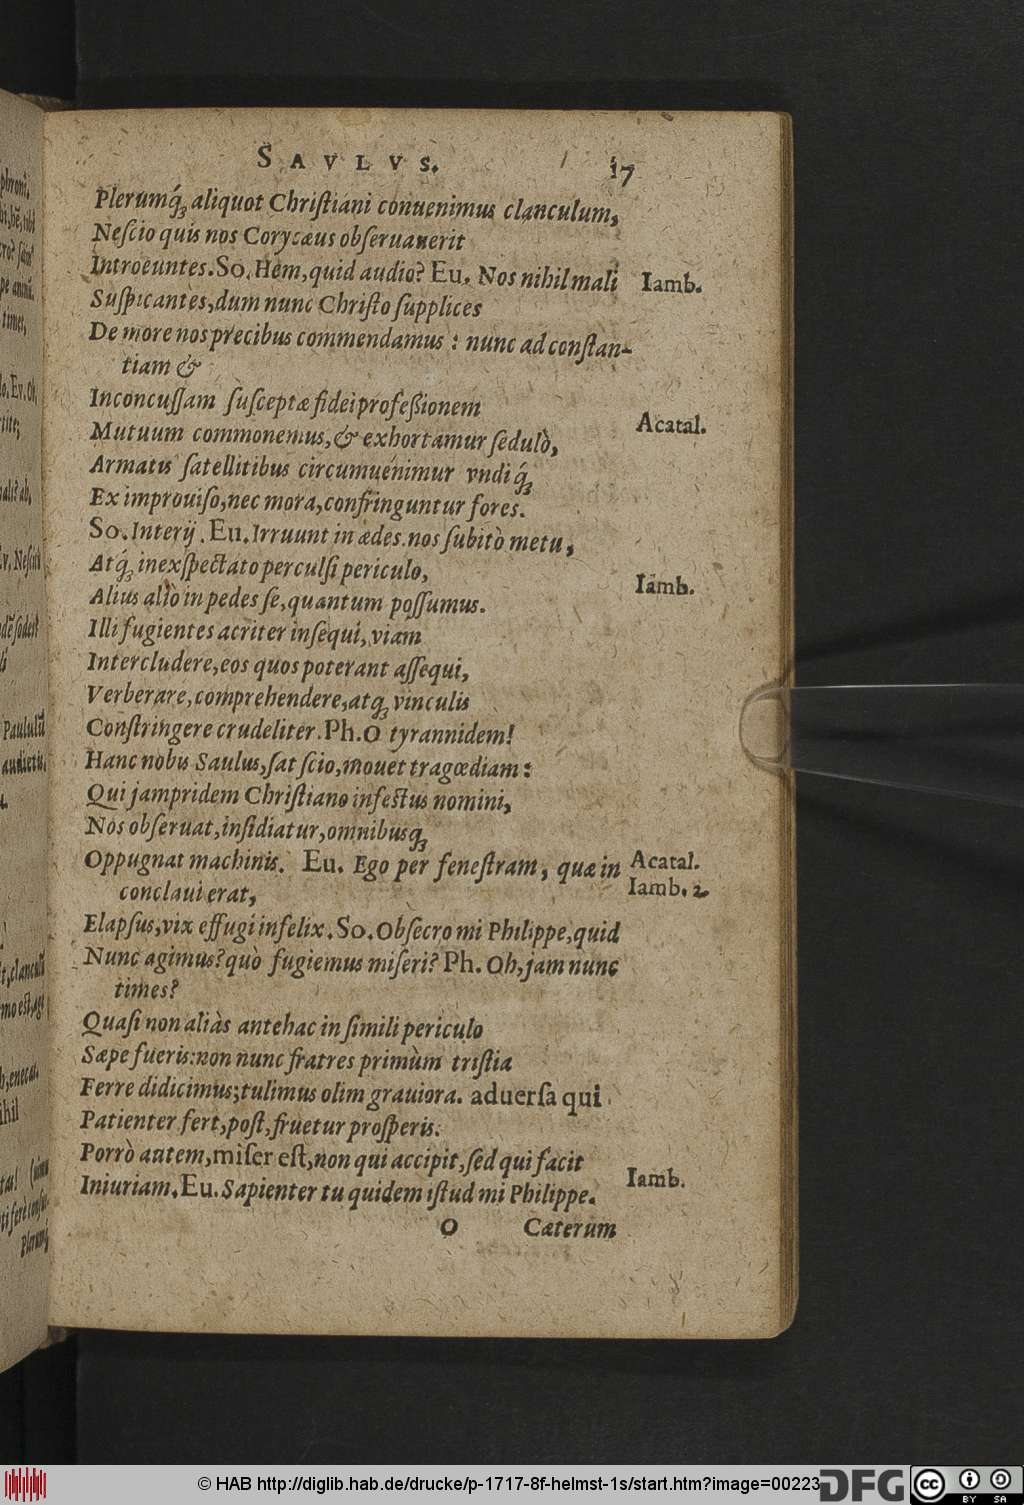 SAVLVS. 17
Plerumq́; aliquot Chriſtiani conuenimus clanculum,
Neſcio quis nos Corycæus obſeruauerit
Introeuntes. So. Hem, quid audio? Eu. Nos nihil mali Iamb.
Suſpicantes, dum nunc Chriſto ſupplices
De more nos precibus commendamus: nunc ad conſtan-
tiam &
Inconcuſſam ſuſceptæ fidei profeßionem Acatal.
Mutuum commonemus, & exhortamur ſedulò,
Armatis ſatellitibus circumuenimur vndiq́;
Ex improuiſo, nec mora, confringuntur fores.
So. Interij. Eu. Irruunt in ædes. nos ſubitò metu,
Atq́; inexſpectato perculſi periculo, Iamb.
Alius aliò in pedes ſe, quantum poſſumus.
Illi fugientes acriter inſequi, viam
Intercludere, eos quos poterant aſſequi,
Verberare, comprehendere, atq; vinculis
Conſtringere crudeliter. Ph. O tyrannidem!
Hanc nobis Saulus, ſat ſcio, mouet tragœdiam:
Qui jampridem Chriſtiano infeſtus nomini,
Nos obſeruat, inſidiatur, omnibusq;
Oppugnat machinis. Eu. Ego per feneſtram, quæ in Acatal.
conclaui erat, Iamb. 2
Elapſus, vix effugi infelix. So. Obſecro mi Philippe, quid
Nunc agimus? quò fugiemus miſeri? Ph. Oh, jam nunc
times?
Quaſi non aliàs antehac in ſimili periculo
Sæpe fueris: non nunc fratres primùm triſtia
Ferre didicimus; tulimus olim grauiora. aduerſa qui
Patienter fert, poſt, fruetur proſperis.
Porrò autem, miſer eſt, non qui accipit, ſed qui facit
Iniuriam. Eu. Sapienter tu quidem iſtud mi Philippe. Iamb.
O Cæterum
© HAB http://diglib.hab.de/drucke/p-1717-8f-helmst-1s/start.htm?image=00223
DFG
cc BY SA